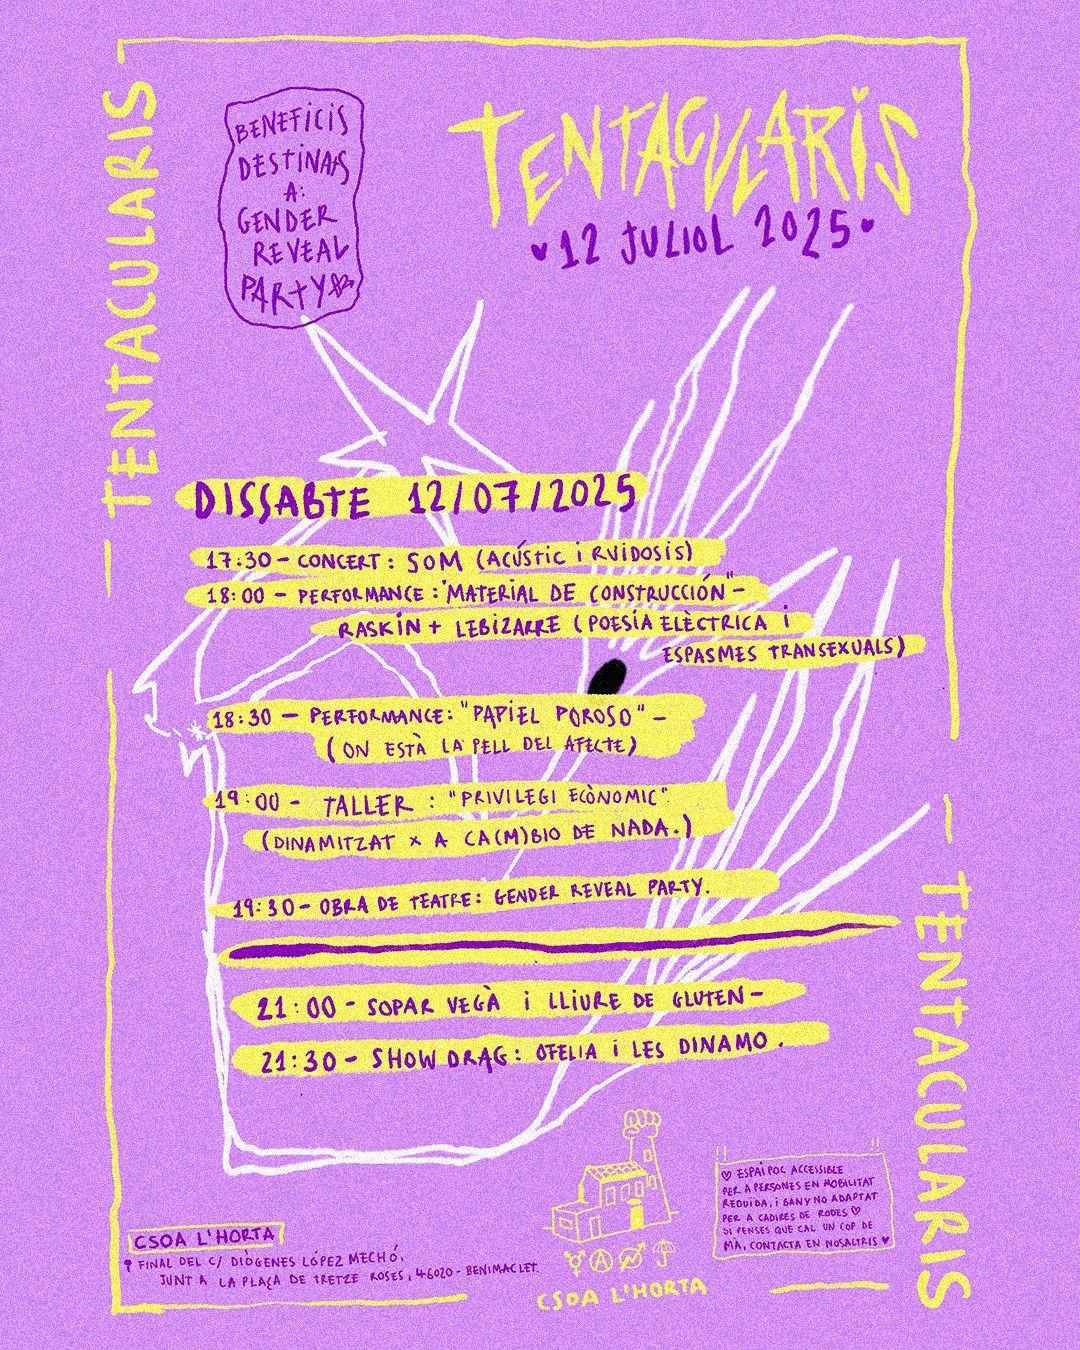 TENTACULARIS
BENEFICIS
DESTINATS
A:
GENDER
REVEAL
PARTY
TENTACULARIS
12 JULIOL 2025
DISSABTE 12/07/2025
17:30 - CONCERT: SOM (ACÚSTIC i RUIDOSIS)
18:00 - PERFORMANCE: "MATERIAL DE CONSTRUCCIÓN" -
RASKIN + LEBIZARRE (POESÍA ELÈCTRICA i
ESPASMES TRANSEXUALS)
18:30 - PERFORMANCE: "PAPIEL POROSO" -
(ON ESTÀ LA PELL DEL AFECTE)
19:00 - TALLER: "PRIVILEGI ECÒNOMIC".
(DINAMITZAT X A CA(M)BIO DE NADA.)
19:30 - OBRA DE TEATRE: GENDER REVEAL PARTY.
21:00 - SOPAR VEGÀ i LLIURE DE GLUTEN -
21:30 - SHOW DRAG: OFELIA i LES DINAMO.
TENTACULARIS
ESPAI POC ACCESSIBLE
PER A PERSONES EN MOBILITAT
REDUIDA, i BANY NO ADAPTAT
PER A CADIRES DE RODES
SI PENSES QUE CAL UN COP DE
MÀ, CONTACTA EN NOSALTRIS
CSOA L'HORTA
FINAL DEL C/ DIÒGENES LÓPEZ MECHÓ,
JUNT A LA PLAÇA DE TRETZE ROSES, 46020 - BENIMACLET.
CSOA L'HORTA